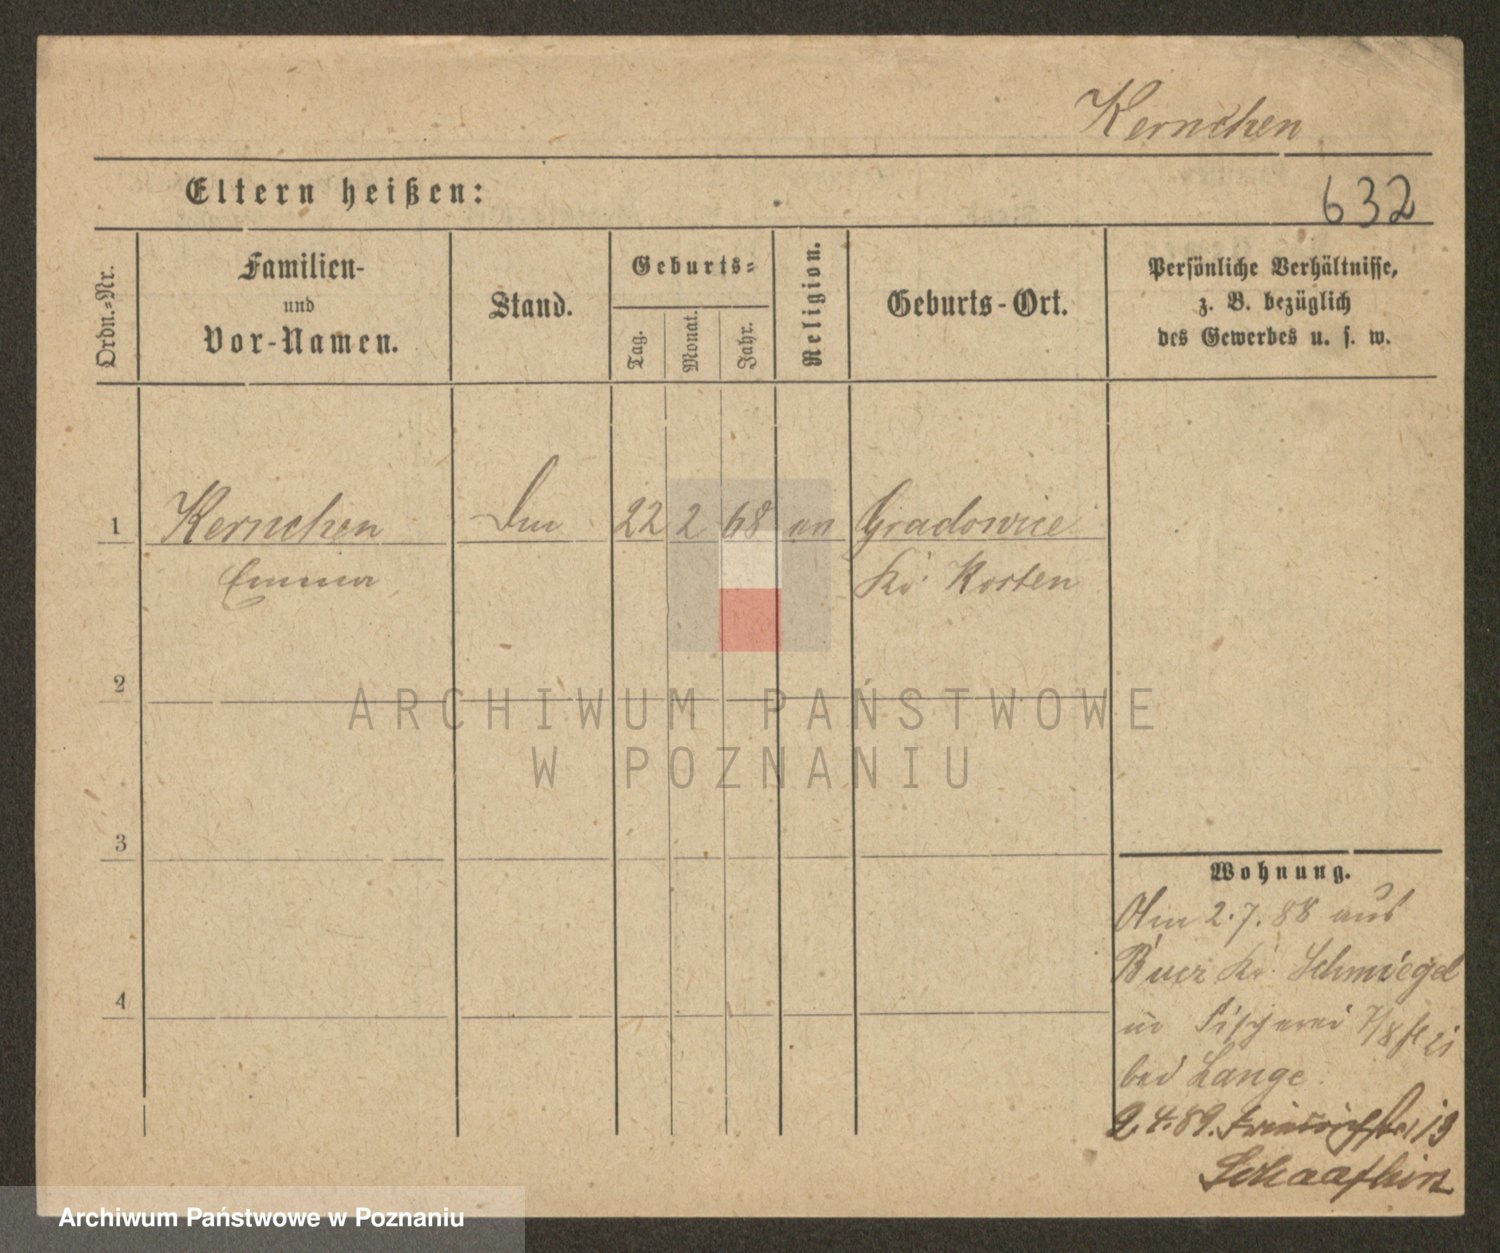 Kernchen
Eltern heißen:
632
Ordn.-Nr.
Familien-
und
Vor-Namen.
Stand.
Geburts-
Tag.
Monat.
Jahr.
Religion.
Geburts-Ort.
Persönliche Verhältnisse,
z. B. bezüglich
des Gewerbes u. s. w.
1 Kernchen 22 2 68 Gradowice
Emma Kr. Kosten
2
ARCHIWUM PAŃSTWOWE
W POZNANIU
3
Wohnung.
Am 2.7.88 aus
4
Kr. Schmiegel
Fischerei 7/8
bei Lange.
2 4.89. 19
Archiwum Państwowe w Poznaniu